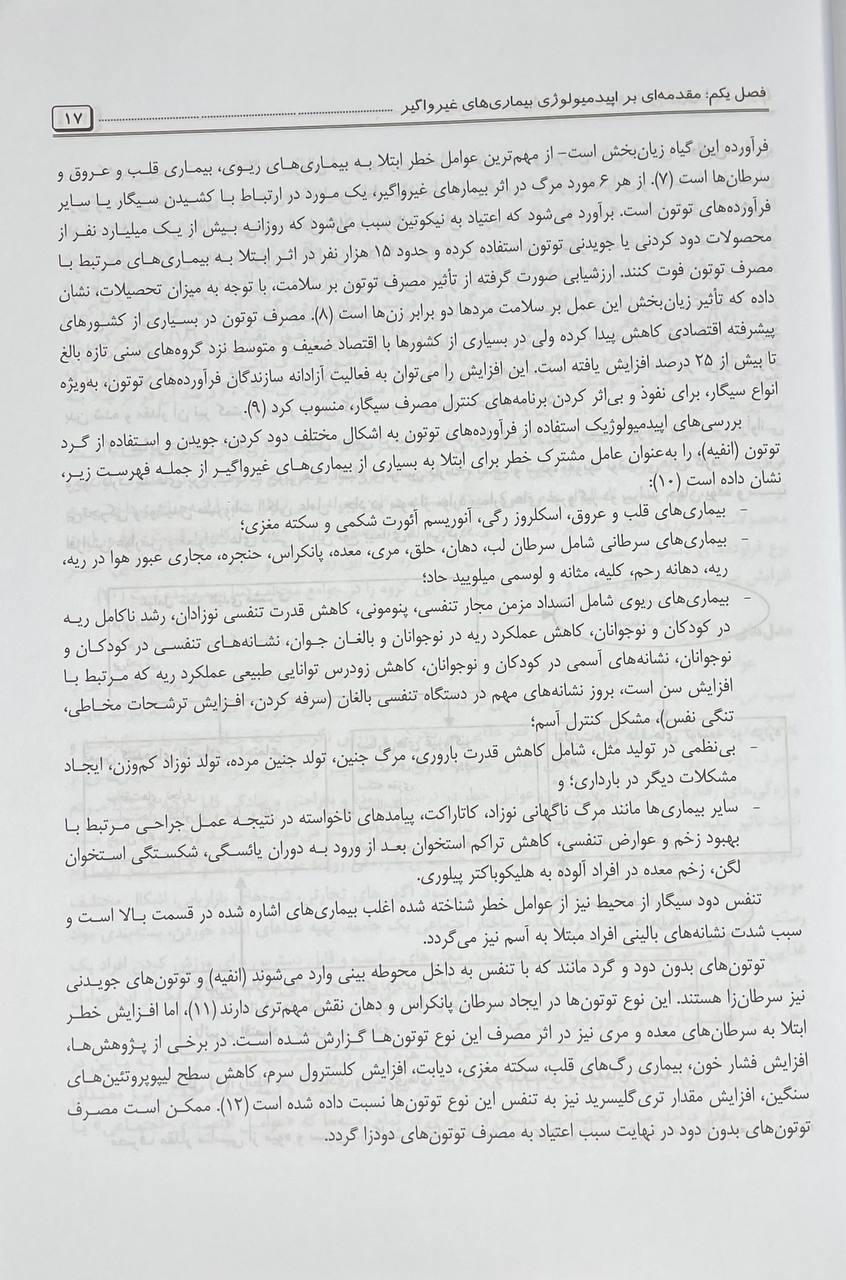 فصل یکم: مقدمه‌ای بر اپیدمیولوژی بیماری‌های غیرواگیر ۱۷
فرآورده این گیاه زیان‌بخش است- از مهم‌ترین عوامل خطر ابتلا به بیماری‌های ریوی، بیماری قلب و عروق و
سرطان‌ها است (۷). از هر ۶ مورد مرگ در اثر بیمارهای غیرواگیر، یک مورد در ارتباط با کشیدن سیگار یا سایر
فرآورده‌های توتون است. برآورد می‌شود که اعتیاد به نیکوتین سبب می‌شود که روزانه بیش از یک میلیارد نفر از
محصولات دود کردنی یا جویدنی توتون استفاده کرده و حدود ۱۵ هزار نفر در اثر ابتلا به بیماری‌های مرتبط با
مصرف توتون فوت کنند. ارزشیابی صورت گرفته از تأثیر مصرف توتون بر سلامت، با توجه به میزان تحصیلات، نشان
داده که تأثیر زیان‌بخش این عمل بر سلامت مردها دو برابر زن‌ها است (۸). مصرف توتون در بسیاری از کشورهای
پیشرفته اقتصادی کاهش پیدا کرده ولی در بسیاری از کشورها با اقتصاد ضعیف و متوسط نزد گروه‌های سنی تازه بالغ
تا بیش از ۲۵ درصد افزایش یافته است. این افزایش را می‌توان به فعالیت آزادانه سازندگان فرآورده‌های توتون، به‌ویژه
انواع سیگار، برای نفوذ و بی‌اثر کردن برنامه‌های کنترل مصرف سیگار، منسوب کرد (۹).
بررسی‌های اپیدمیولوژیک استفاده از فرآورده‌های توتون به اشکال مختلف دود کردن، جویدن و استفاده از گرد
توتون (انفیه)، را به‌عنوان عامل مشترک خطر برای ابتلا به بسیاری از بیماری‌های غیرواگیر از جمله فهرست زیر،
نشان داده است (۱۰):
- بیماری‌های قلب و عروق، اسکلروز رگی، آنوریسم آئورت شکمی و سکته مغزی؛
- بیماری‌های سرطانی شامل سرطان لب، دهان، حلق، مری، معده، پانکراس، حنجره، مجاری عبور هوا در ریه،
ریه، دهانه رحم، کلیه، مثانه و لوسمی میلویید حاد؛
- بیماری‌های ریوی شامل انسداد مزمن مجار تنفسی، پنومونی، کاهش قدرت تنفسی نوزادان، رشد ناکامل ریه
در کودکان و نوجوانان، کاهش عملکرد ریه در نوجوانان و بالغان جوان، نشانه‌های تنفسی در کودکان و
نوجوانان، نشانه‌های آسمی در کودکان و نوجوانان، کاهش زودرس توانایی طبیعی عملکرد ریه که مرتبط با
افزایش سن است، بروز نشانه‌های مهم در دستگاه تنفسی بالغان (سرفه کردن، افزایش ترشحات مخاطی،
تنگی نفس)، مشکل کنترل آسم؛
- بی‌نظمی در تولید مثل، شامل کاهش قدرت باروری، مرگ جنین، تولد جنین مرده، تولد نوزاد کم‌وزن، ایجاد
مشکلات دیگر در بارداری؛ و
- سایر بیماری‌ها مانند مرگ ناگهانی نوزاد، کاتاراکت، پیامدهای ناخواسته در نتیجه عمل جراحی مرتبط با
بهبود زخم و عوارض تنفسی، کاهش تراکم استخوان بعد از ورود به دوران یائسگی، شکستگی استخوان
لگن، زخم معده در افراد آلوده به هلیکوباکتر پیلوری.
تنفس دود سیگار از محیط نیز از عوامل خطر شناخته شده اغلب بیماری‌های اشاره شده در قسمت بالا است و
سبب شدت نشانه‌های بالینی افراد مبتلا به آسم نیز می‌گردد.
توتون‌های بدون دود و گرد مانند که با تنفس به داخل محوطه بینی وارد می‌شوند (انفیه) و توتون‌های جویدنی
نیز سرطان‌زا هستند. این نوع توتون‌ها در ایجاد سرطان پانکراس و دهان نقش مهم‌تری دارند (۱۱)، اما افزایش خطر
ابتلا به سرطان‌های معده و مری نیز در اثر مصرف این نوع توتون‌ها گزارش شده است. در برخی از پژوهش‌ها،
افزایش فشار خون، بیماری رگ‌های قلب، سکته مغزی، دیابت، افزایش کلسترول سرم، کاهش سطح لیپوپروتئین‌های
سنگین، افزایش مقدار تری‌گلیسرید نیز به تنفس این نوع توتون‌ها نسبت داده شده است (۱۲). ممکن است مصرف
توتون‌های بدون دود در نهایت سبب اعتیاد به مصرف توتون‌های دودزا گردد.